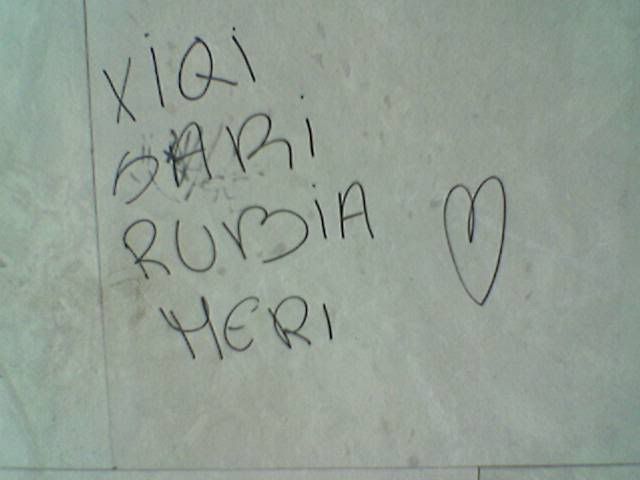 XiQi
SARi
RUBiA
MERI